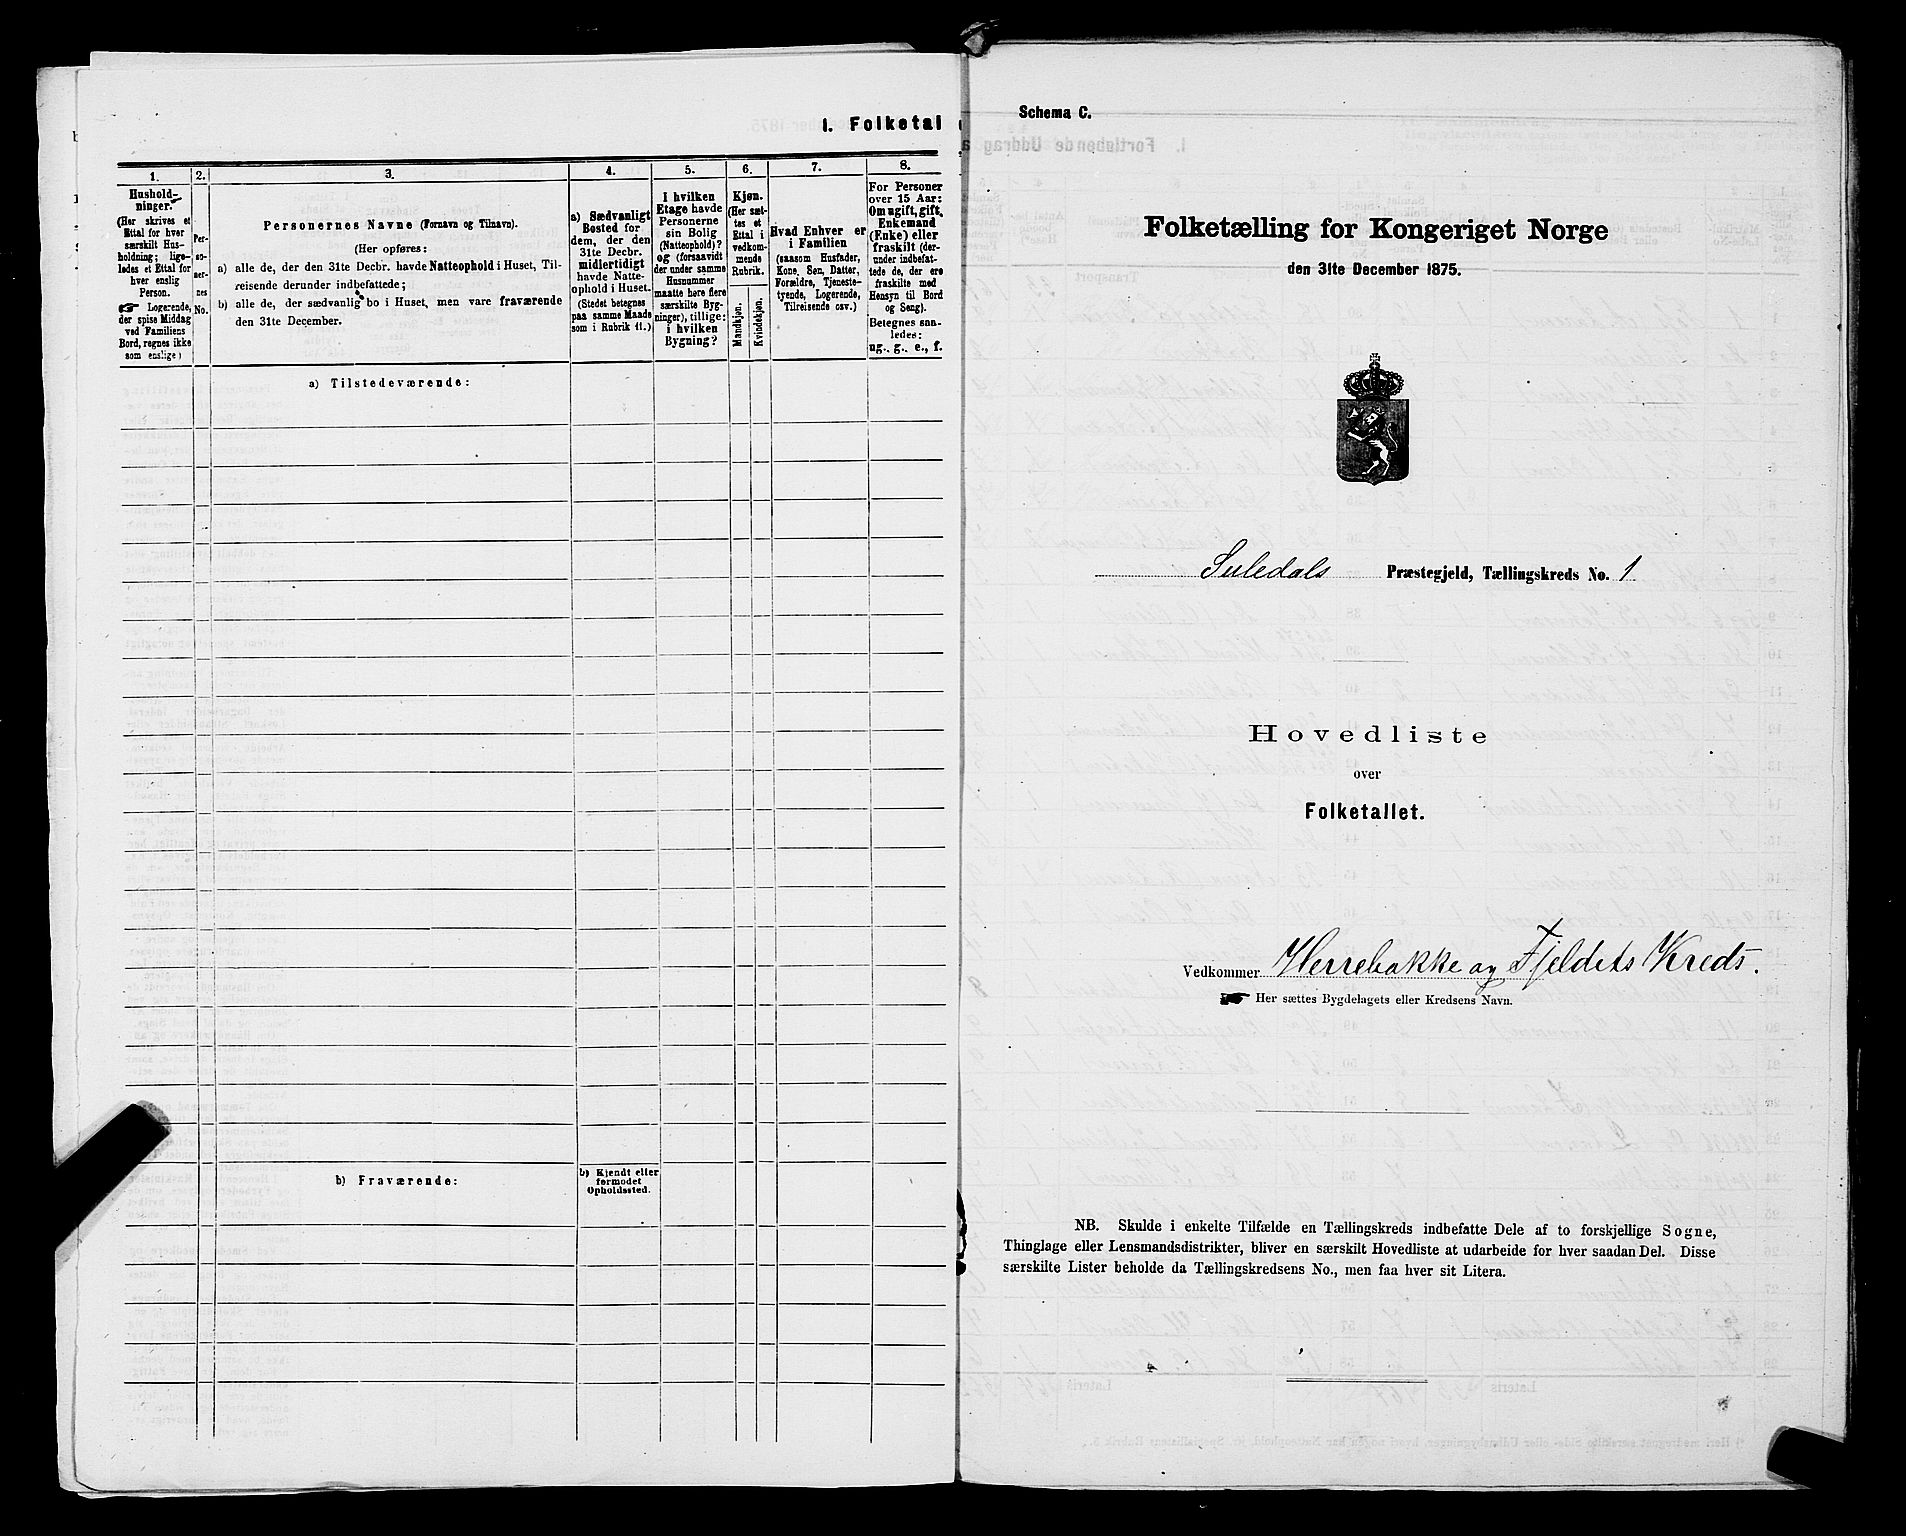 I. Folketal
1.
2.
3.
4.
5.
6.
7.
8.
Hushold-
ninger.
(Her skrives et
Ettal for hver
særskilt Hus-
holdning; lige-
ledes et Ettal for
hver enslig
Person.
Logerende,
der spise Middag
ved Familiens
Bord, regnes ikke
som enslige)
Per-
so-
ner-
nes
No.
Personernes Navne (Fornavn og Tilnavn).
(Her opføres:
a) alle de, der den 31te Decbr. havde Natteophold i Huset, Til-
reisende derunder indbefattede;
b) alle de, der sædvanlig bo i Huset, men vare fraværende
den 31te December.
a) Sædvanligt
Bosted for
dem, der den
31te Decbr.
midlertidigt
havde Natte-
ophold i Huset.
(Stedet betegnes
paa samme Maade
som i Rubrik 11.)
I hvilken
Etage havde
Personerne
sin Bolig
(Natteophold)?
og (forsaavidt
der under samme
Husnummer
maatte høre flere
særskilte Byg-
ninger), tillige:
i hvilken
Bygning?
Kjøn.
(Her sæt-
tes et
Ettal i
vedkom-
mende
Rubrik.
Mandkjøn.
Kvindekjøn.
Hvad Enhver er
i Familien
(saasom Husfader,
Kone, Søn, Datter,
Forældre, Tjeneste-
tyende, Logerende,
Tilreisende osv.)
For Personer
over 15 Aar:
Om ugift, gift,
Enkemand
(Enke) eller
fraskilt (der-
under indbefat-
tede de, der ere
fraskilte med
Hensyn til Bord
og Seng).
Betegnes saa-
ledes:
ug., g., e., f.
a) Tilstedeværende:
b) Fraværende:
b) Kjendt eller
formodet
Opholdssted.
Schema C.
Folketælling for Kongeriget Norge
den 31te December 1875.
Suledals Præstegjeld, Tællingskreds No. 1
Hovedliste
over
Folketallet.
Vedkommer Herrebakke og Fjeldets Kreds.
Her sættes Bygdelagets eller Kredsens Navn.
NB. Skulde i enkelte Tilfælde en Tællingskreds indbefatte Dele af to forskjellige Sogne,
Thinglage eller Lensmandsdistrikter, bliver en særskilt Hovedliste at udarbeide for hver saadan Del. Disse
særskilte Lister beholde da Tællingskredsens No., men faa hver sit Litera.